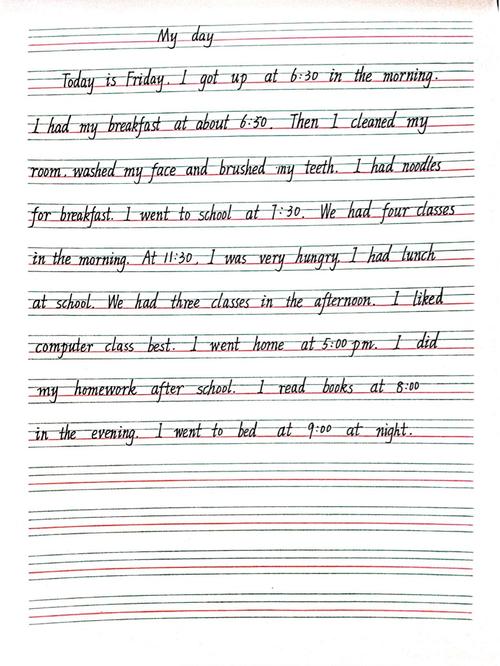 My day
Today is Friday. I got up at 6:30 in the morning.
I had my breakfast at about 6:50. Then I cleaned my
room, washed my face and brushed my teeth. I had noodles
for breakfast. I went to school at 7:30. We had four classes
in the morning. At 11:30, I was very hungry. I had lunch
at school. We had three classes in the afternoon. I liked
computer class best. I went home at 5:00 pm. I did
my homework after school. I read books at 8:00
in the evening. I went to bed at 9:00 at night.